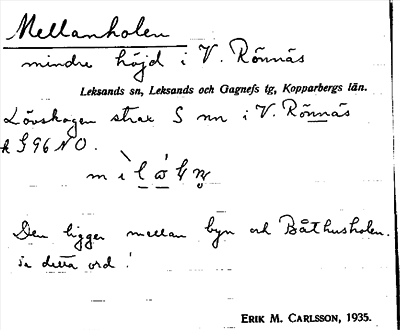 Mellanholen
mindre höjd i V. Rönnäs
Leksands sn, Leksands och Gagnefs tg, Kopparbergs län.
Lövskogen strax S nn i V. Rönnäs
k S96 NO.
Den ligger mellan byn och Båthusholen.
se detta ord!
ERIK M. CARLSSON, 1935.